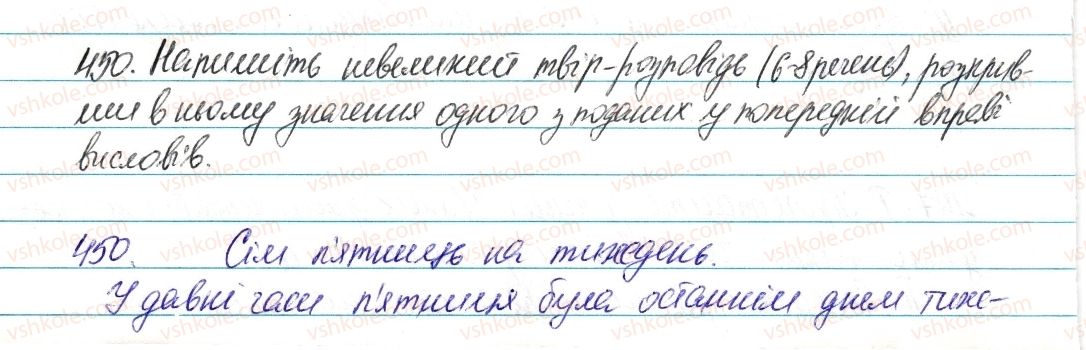 450. Напишіть невеликий твір-розповідь (6-8 речень), розкрив-
ши в ньому значення одного з поданих у попередній вправі
висловів.
450. Сім п'ятниць на тиждень.
У давні часи п'ятниця була останнім днем тиж-